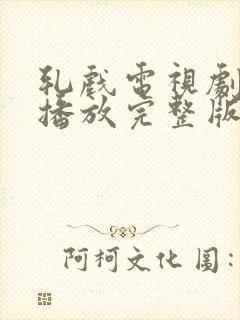 乳戲電視劇
播放完整版
阿柯文化 圖: